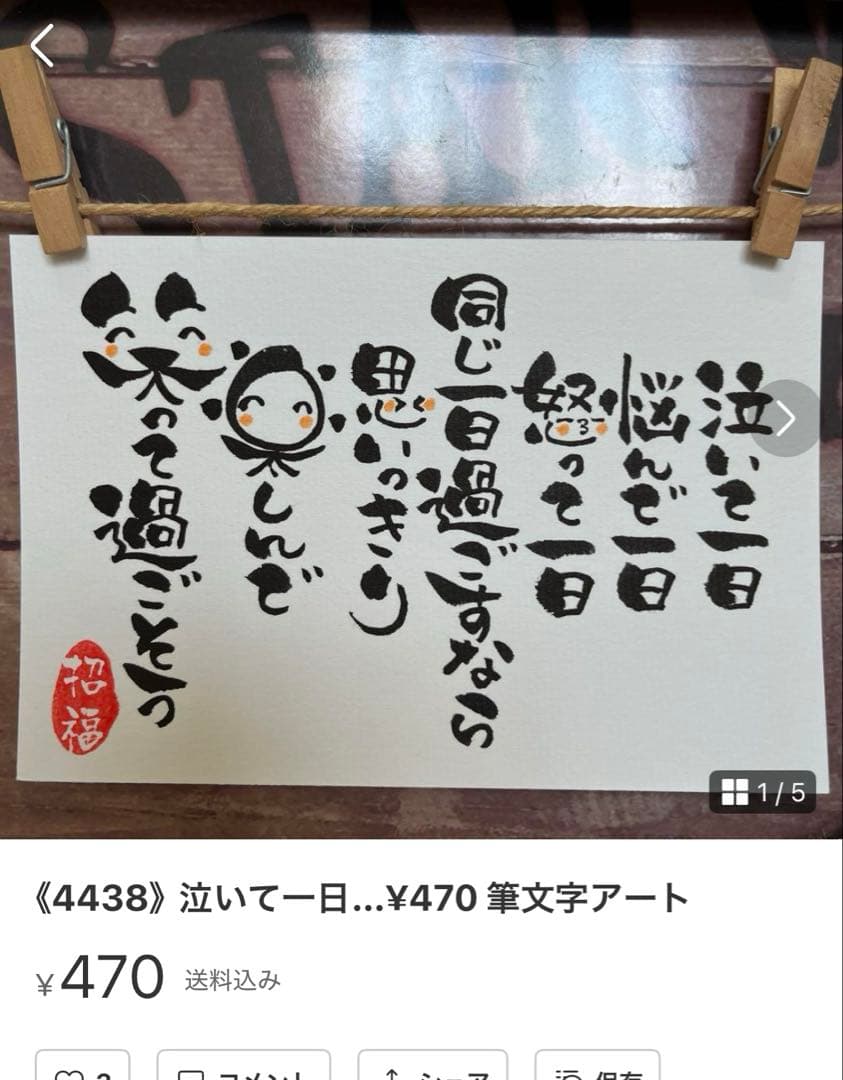 泣いて一日
悩んで一日
怒って一日
同じ一日過ごすなら
思いっきり
楽しんで
笑って過ごそう
招福
1 / 5
《4438》泣いて一日...¥470 筆文字アート
¥470 送料込み
コメント
シェア
保存